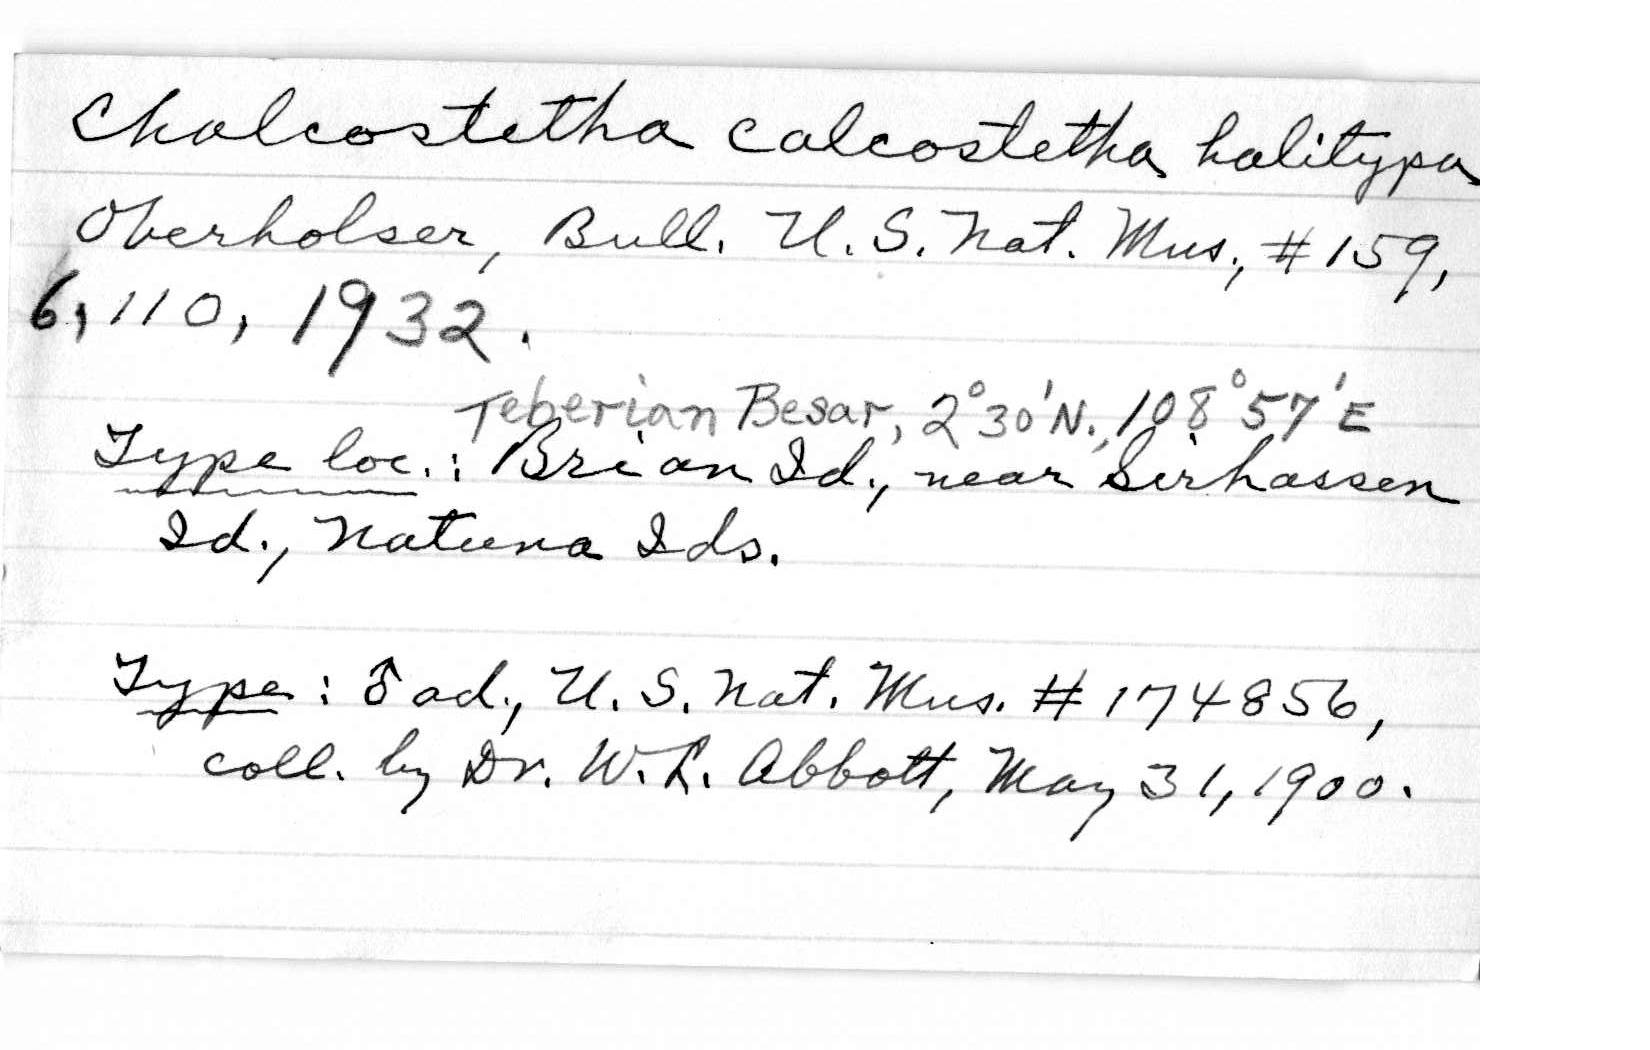 Chalcostetha calcostetha halitypa
Oberholser, Bull. U.S. Nat. Mus., #159,
6, 110, 1932.
Teberian Besar, 2°30'N., 108°57'E
Type loc.: Brian Id., near Sirhassen
Id., Natuna Ids.
Type: ♂ ad., U.S. Nat. Mus. # 174856,
coll. by Dr. W. L. Abbott, May 31, 1900.